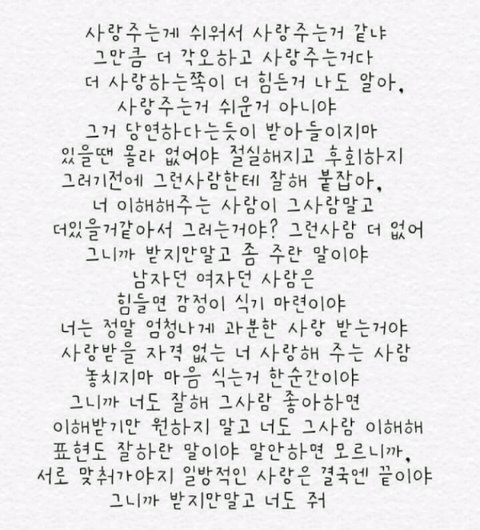 사랑주는게 쉬워서 사랑주는거 같냐
그만큼 더 각오하고 사랑주는거다
더 사랑하는쪽이 더 힘든거 나도 알아,
사랑주는거 쉬운거 아니야
그거 당연하다는듯이 받아들이지마
있을땐 몰라 없어야 절실해지고 후회하지
그러기전에 그런사람한테 잘해 붙잡아,
너 이해해주는 사람이 그사람말고
더있을거같아서 그러는거야? 그런사람 더 없어
그니까 받지만말고 좀 주란 말이야
남자던 여자던 사람은
힘들면 감정이 식기 마련이야
너는 정말 엄청나게 과분한 사랑 받는거야
사랑받을 자격 없는 너 사랑해 주는 사람
놓치지마 마음 식는거 한순간이야
그니까 너도 잘해 그사람 좋아하면
이해받기만 원하지 말고 너도 그사람 이해해
표현도 잘하란 말이야 말안하면 모르니까,
서로 맞춰가야지 일방적인 사랑은 결국엔 끝이야
그니까 받지만말고 너도 줘